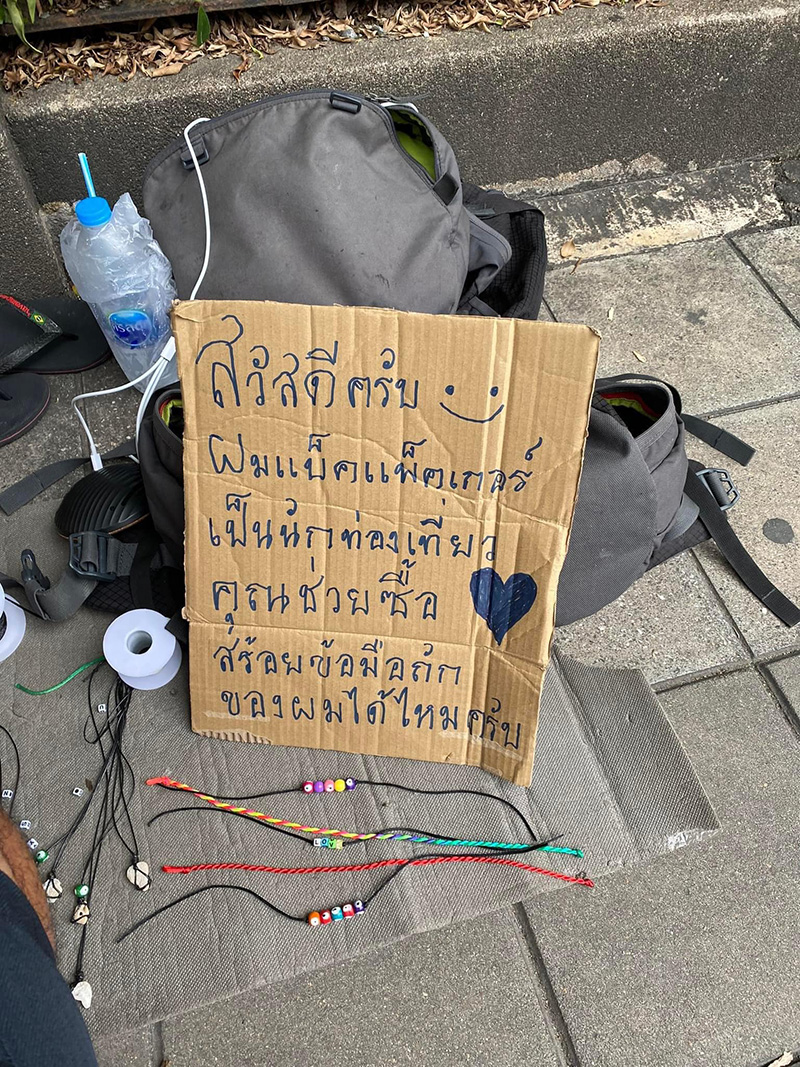 สวัสดีครับ
ผมแบ็คแพ็คเกอร์
เป็นนักท่องเที่ยว
คุณช่วยซื้อ
สร้อยข้อมือถัก
ของผมได้ไหมครับ
LOVE